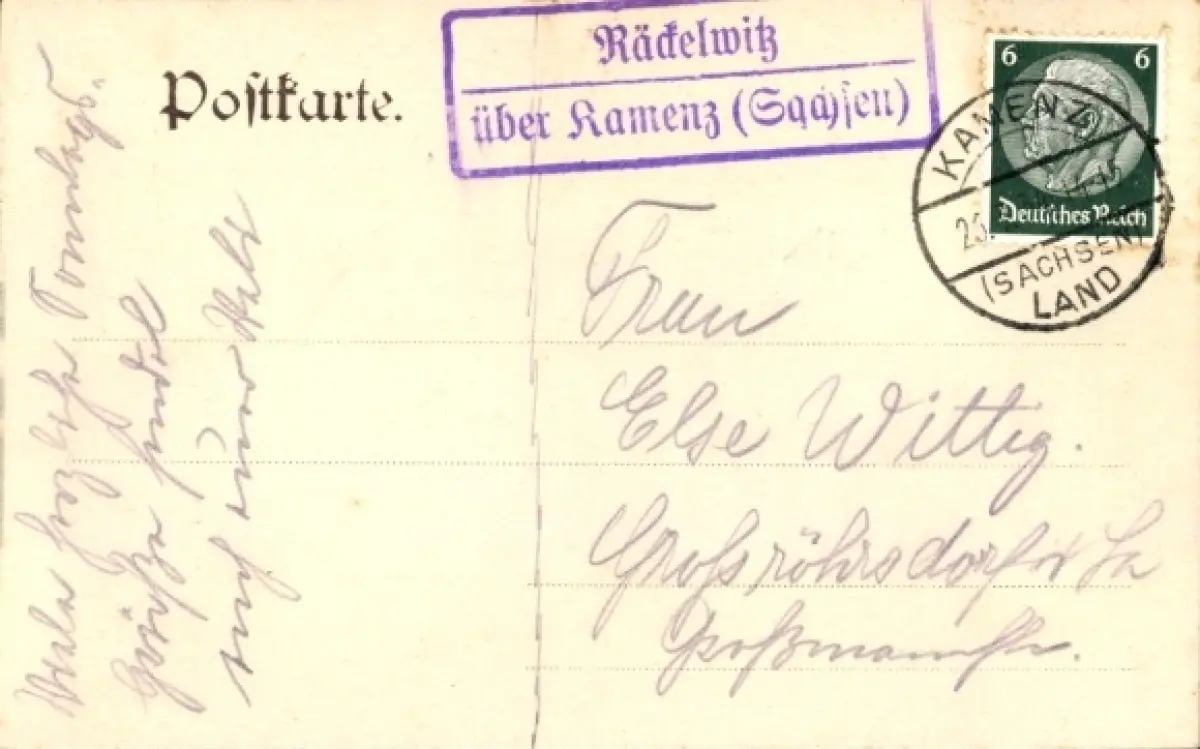 Postkarte.
Räckelwitz
über Kamenz (Sachsen)
6 6
Deutsches Reich
KAMENZ
(SACHSEN)
LAND
Viele herzliche Sonntags-
Grüße sendet
Frau
Else Wittig.
Grossröhrsdorf i Sa